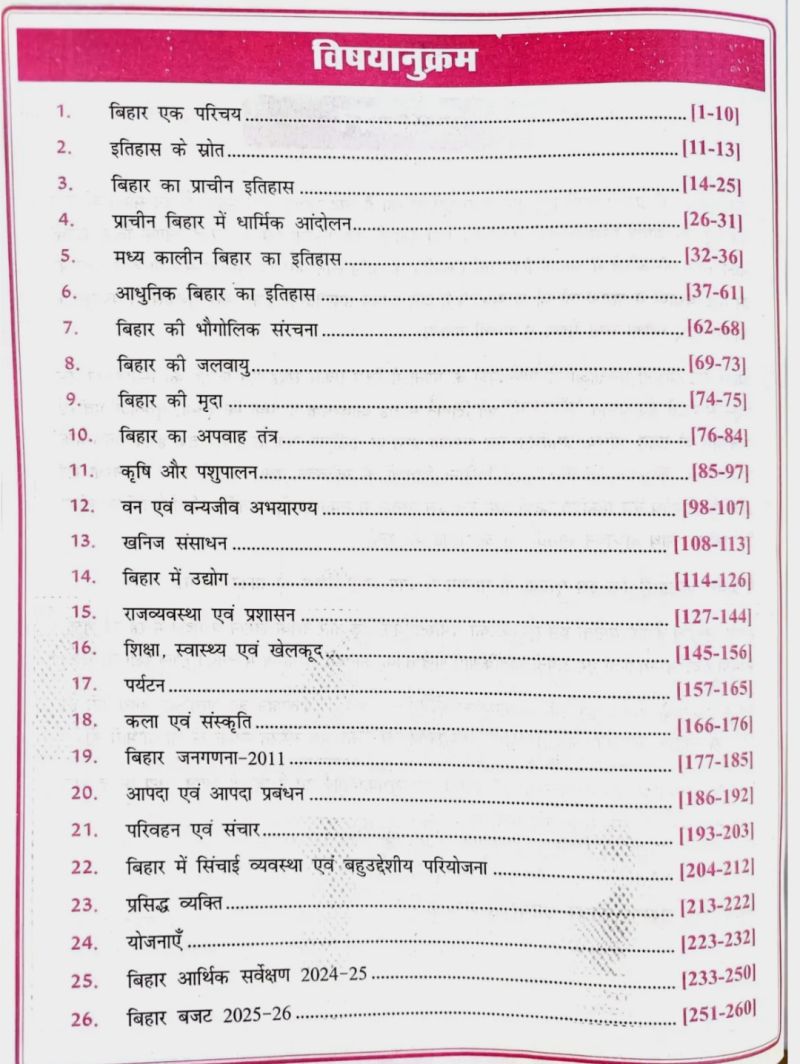 विषयानुक्रम
1. बिहार एक परिचय [1-10]
2. इतिहास के स्रोत [11-13]
3. बिहार का प्राचीन इतिहास [14-25]
4. प्राचीन बिहार में धार्मिक आंदोलन [26-31]
5. मध्य कालीन बिहार का इतिहास [32-36]
6. आधुनिक बिहार का इतिहास [37-61]
7. बिहार की भौगोलिक संरचना [62-68]
8. बिहार की जलवायु [69-73]
9. बिहार की मृदा [74-75]
10. बिहार का अपवाह तंत्र [76-84]
11. कृषि और पशुपालन [85-97]
12. वन एवं वन्यजीव अभयारण्य [98-107]
13. खनिज संसाधन [108-113]
14. बिहार में उद्योग [114-126]
15. राजव्यवस्था एवं प्रशासन [127-144]
16. शिक्षा, स्वास्थ्य एवं खेलकूद [145-156]
17. पर्यटन [157-165]
18. कला एवं संस्कृति [166-176]
19. बिहार जनगणना-2011 [177-185]
20. आपदा एवं आपदा प्रबंधन [186-192]
21. परिवहन एवं संचार [193-203]
22. बिहार में सिंचाई व्यवस्था एवं बहुउद्देशीय परियोजना [204-212]
23. प्रसिद्ध व्यक्ति [213-222]
24. योजनाएँ [223-232]
25. बिहार आर्थिक सर्वेक्षण 2024-25 [233-250]
26. बिहार बजट 2025-26 [251-260]